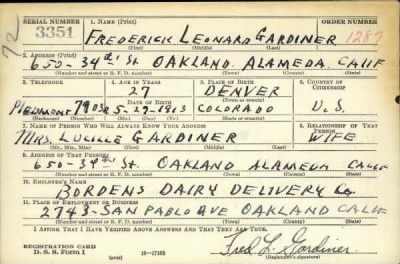 SERIAL NUMBER 1. NAME (Print) ORDER NUMBER
3351 FREDERICK LEONARD GARDINER 1287
(First) (Middle) (Last)
72
2. ADDRESS (Print)
650-34th St. OAKLAND ALAMEDA CALIF
(Number and street or R. F. D. number) (Town) (County) (State)
3. TELEPHONE 4. AGE IN YEARS 5. PLACE OF BIRTH 6. COUNTRY OF CITIZENSHIP
27 DENVER
(Town or county)
DATE OF BIRTH
PIEDMONT 5-29-1913 COLORADO U.S.
(Exchange) (Number) (Mo.) (Day) (Yr.) (State or country)
7. NAME OF PERSON WHO WILL ALWAYS KNOW YOUR ADDRESS 8. RELATIONSHIP OF THAT PERSON
MRS. LUCILLE GARDINER WIFE
(Mr., Mrs., Miss) (First) (Middle) (Last)
9. ADDRESS OF THAT PERSON
650-34th St. OAKLAND ALAMEDA CALIF
(Number and street or R. F. D. number) (Town) (County) (State)
10. EMPLOYER'S NAME
BORDENS DAIRY DELIVERY Co.
11. PLACE OF EMPLOYMENT OR BUSINESS
2743-SAN PABLO AVE OAKLAND CALIF
(Number and street or R. F. D. number) (Town) (County) (State)
I AFFIRM THAT I HAVE VERIFIED ABOVE ANSWERS AND THAT THEY ARE TRUE.
REGISTRATION CARD
D. S. S. Form 1 (over) 16-17105 Fred L. Gardiner
(Registrant's signature)